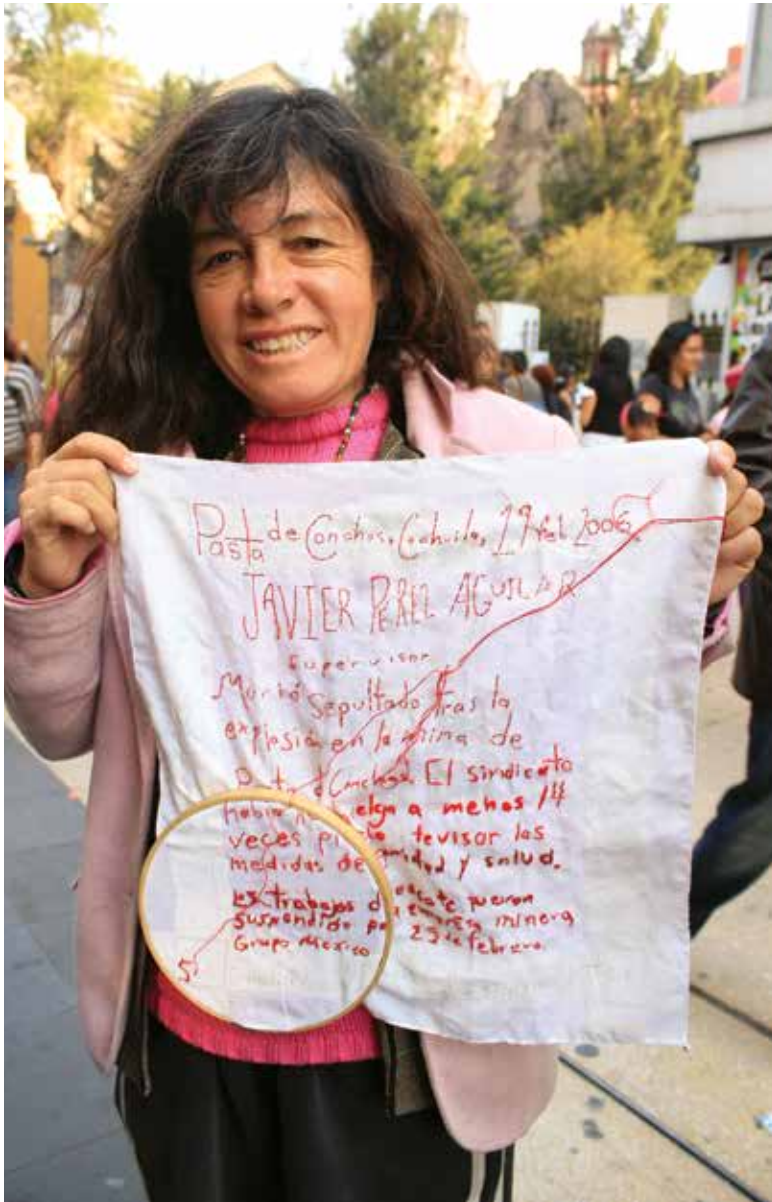 Pasta de Conchos, Coahuila, 19 feb 2006
JAVIER PEREZ AGUILAR
Supervisor
Murió sepultado tras la
explosión en la mina de
Pasta d Conchos. El sindicato
había elga a menos 14
veces revisor las
medidas de y salud.
los trabajos d cate fueron
suspendido po empresa minera
Grupo Mexico 25 de febrero.
5